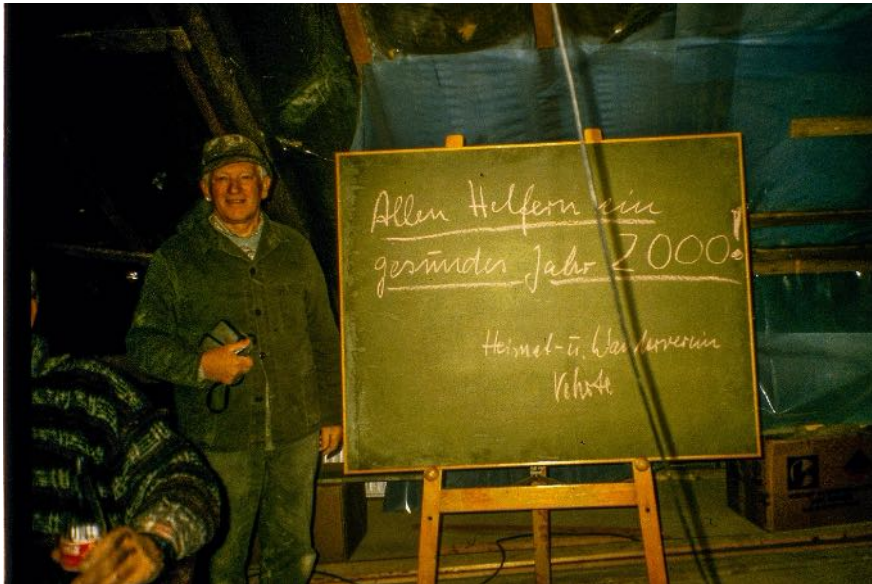 Allen Helfern ein
gesundes Jahr 2000!
Heimat- u. Wanderverein
Vehrte